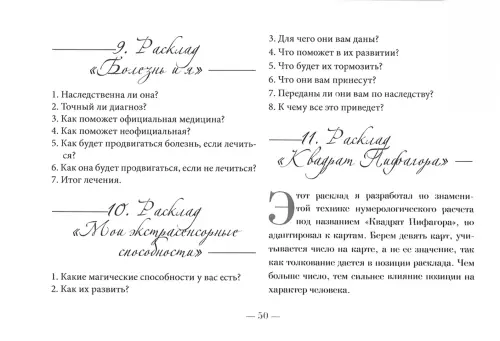 9. Расклад
«Болезнь и я»
1. Наследственна ли она?
2. Точный ли диагноз?
3. Как поможет официальная медицина?
4. Как поможет неофициальная?
5. Как будет продвигаться болезнь, если лечить-
ся?
6. Как она будет продвигаться, если не лечиться?
7. Итог лечения.
10. Расклад
«Мои экстрасенсорные
способности»
1. Какие магические способности у вас есть?
2. Как их развить?
3. Для чего они вам даны?
4. Что поможет в их развитии?
5. Что будет их тормозить?
6. Что они вам принесут?
7. Переданы ли они вам по наследству?
8. К чему все это приведет?
11. Расклад
«Квадрат Пифагора»
Этот расклад я разработал по знамени-
той технике нумерологического расчета
под названием «Квадрат Пифагора», но
адаптировал к картам. Берем девять карт, учи-
тывается число на карте, а не ее значение, так
как толкование дается в позиции расклада. Чем
больше число, тем сильнее влияние позиции на
характер человека.
— 50 —